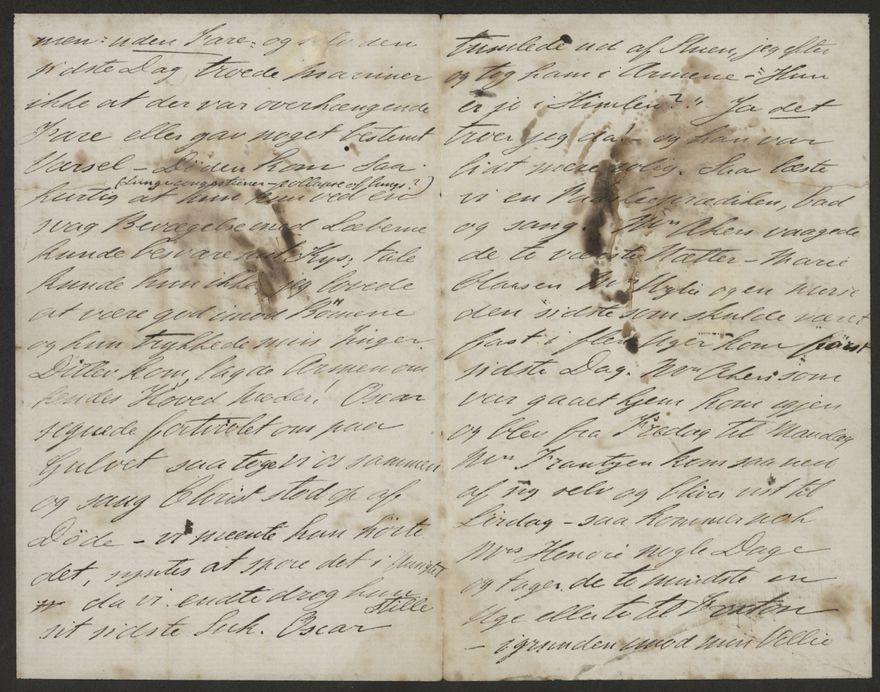 men: uden Fare: og selv den
sidste Dag troede Mariner
ikke at der var overhængende
Fare eller gav noget bestemt
Varsel – Døden kom saa
(Lunge congestioner – collapse of lungs?)
hurtig at hun kun ved en
svag Bevægelse med Læberne
kunde besvare mit Kys, tale
kunde hun ikke jeg lovede
at være god imod Børnene
og hun trykkede min Finger.
Ditlev kom, lagde Armen om
hendes Hoved nedre! Oscar
segnede fortvivlet om paa
Gulvet saa toge vi os sammen
og sang Christ stod op af
Døde – vi meente hun hørte
det, syntes at spore det i
da vi endte drog hun stille
sit sidste Suk. Oscar
tumlede ud af Stuen, jeg efter
og tog ham i Armene – "Hun
er jo i Himlen?" Ja det
troer jeg da! – og han var
lidt mere rolig. Saa læste
vi en Prædiken, bad
og sang. Mrs Akers vaagede
de to værste Nætter – Marie
Olausen Mrs Wylie og en nurse
den sidste som skulde været
fast i flere Uger kom først
sidste Dag. Mrs Akers som
var gaaet hjem kom igjen
og blev fra Fredag til Mandag
Mrs Frantzen kom saa ned
af sig selv og bliver vist til
Lørdag – saa kommer nok
Mrs Henrie nogle Dage
og tager de to mindste en
Uge eller to til
– igrunden imod min Villie